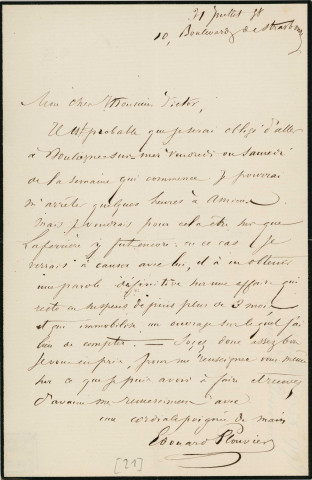 31 juillet 58
10, Boulevard de Strasbourg
Mon cher Monsieur Victor,
Il est probable que je serai obligé d'aller
à Boulogne-sur-mer vendredi ou samedi
de la semaine qui commence. Je pourrai
m'arrêter quelques heures à Amiens.
Mais je voudrais pour cela être sûr que
Laferrière y fût encore: en ce cas (je
verrais à causer avec lui, et à en obtenir
une parole définitive sur une affaire qui
reste en suspens depuis plus de 3 mois
et qui immobilise un ouvrage sur lequel j'ai
bon de compter. — Soyez donc assez bon
je vous en prie, pour me renseigner vous même
sur ce que je puis avoir à faire et recevez
d'avance mes remerciements avec
une cordiale poignée de main
Edouard Plouvier
[21]